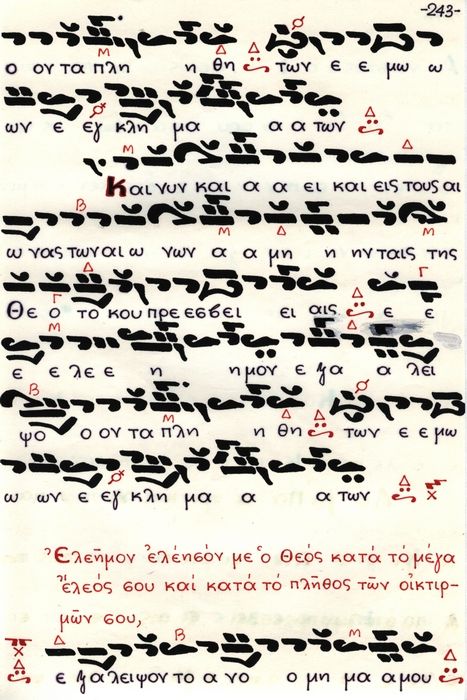 -243-
ο ον τα πλη η θη των ε ε μω ω
ων ε εγ κλη μα α α των
Και νυν και α α ει και εις τους αι
ω νας των αι ω νων α α μη η ην ταις της
Θε ο το κου πρε εσβει ει αις ε ε
ε ε λε ε η η μον ε ξα α λει
ψο ο ον τα πλη η θη των ε ε μω
ω ων ε εγ κλη μα α α των
Ἐλεῆμον ἐλέησόν με ὁ Θεός κατά τό μέγα
ἔλεός σου καί κατά τό πλῆθος τῶν οἰκτιρ-
μῶν σου,
ε ξα λειψον το α νο ο μη μα α μου